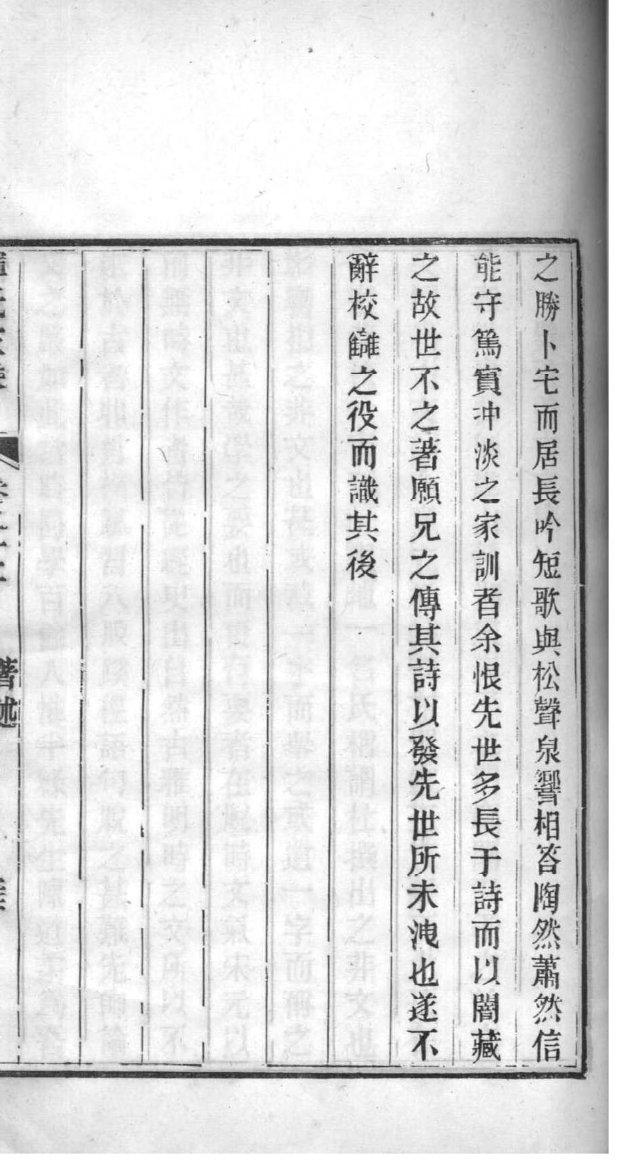 之勝卜宅而居長吟短歌與松聲泉響相答陶然蕭然信
能守篤實冲淡之家訓者余恨先世多長于詩而以闇藏
之故世不之著願兄之傳其詩以發先世所未洩也遂不
辭校讎之役而識其後
著述